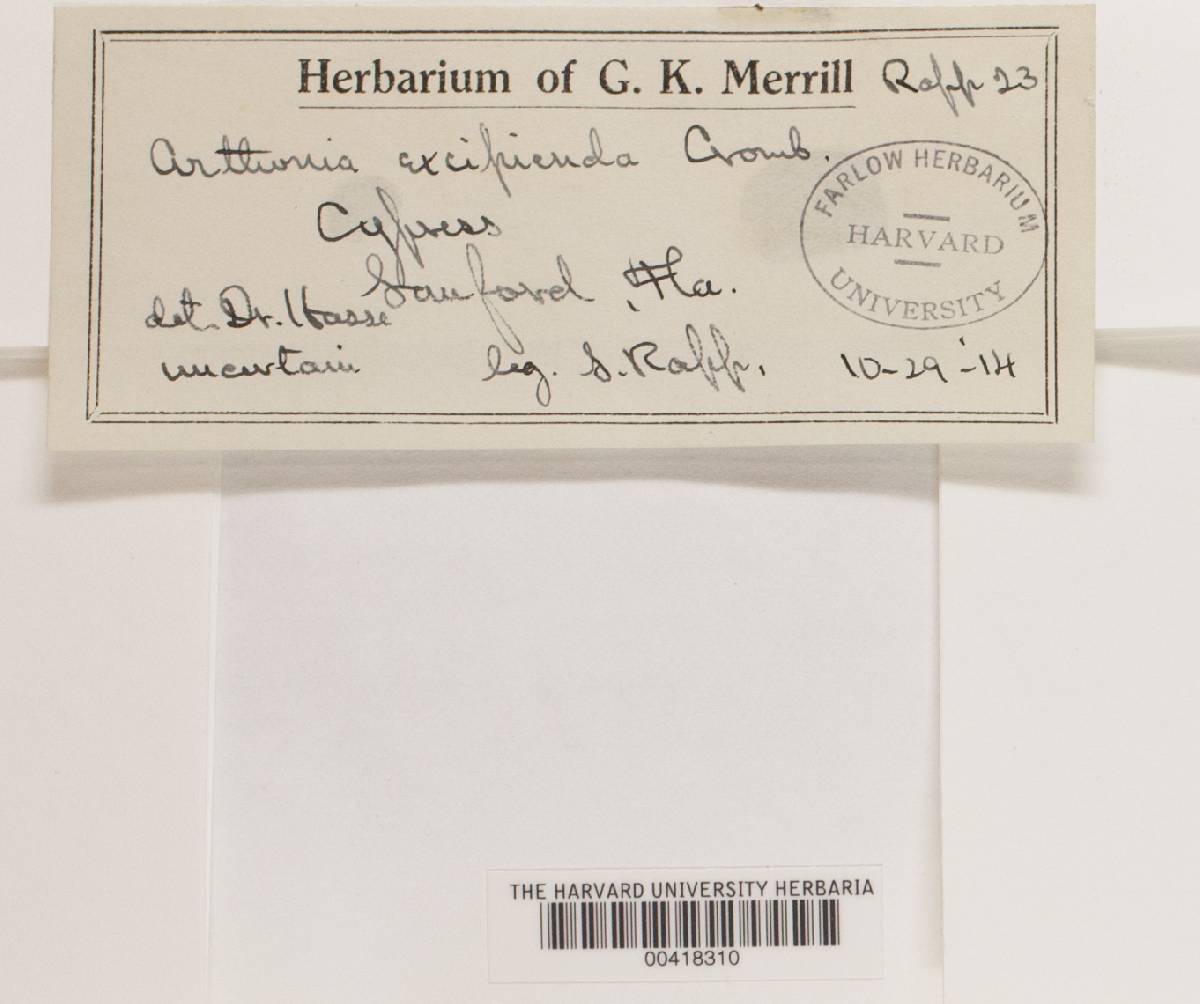 Herbarium of G. K. Merrill Rapp 23
Arthonia excipienda Cromb.
Cypress
Sanford, Fla.
det. Dr. Hasse
uncertain leg. S. Rapp. 10-29-'14
FARLOW HERBARIUM
HARVARD
UNIVERSITY
THE HARVARD UNIVERSITY HERBARIA
00418310